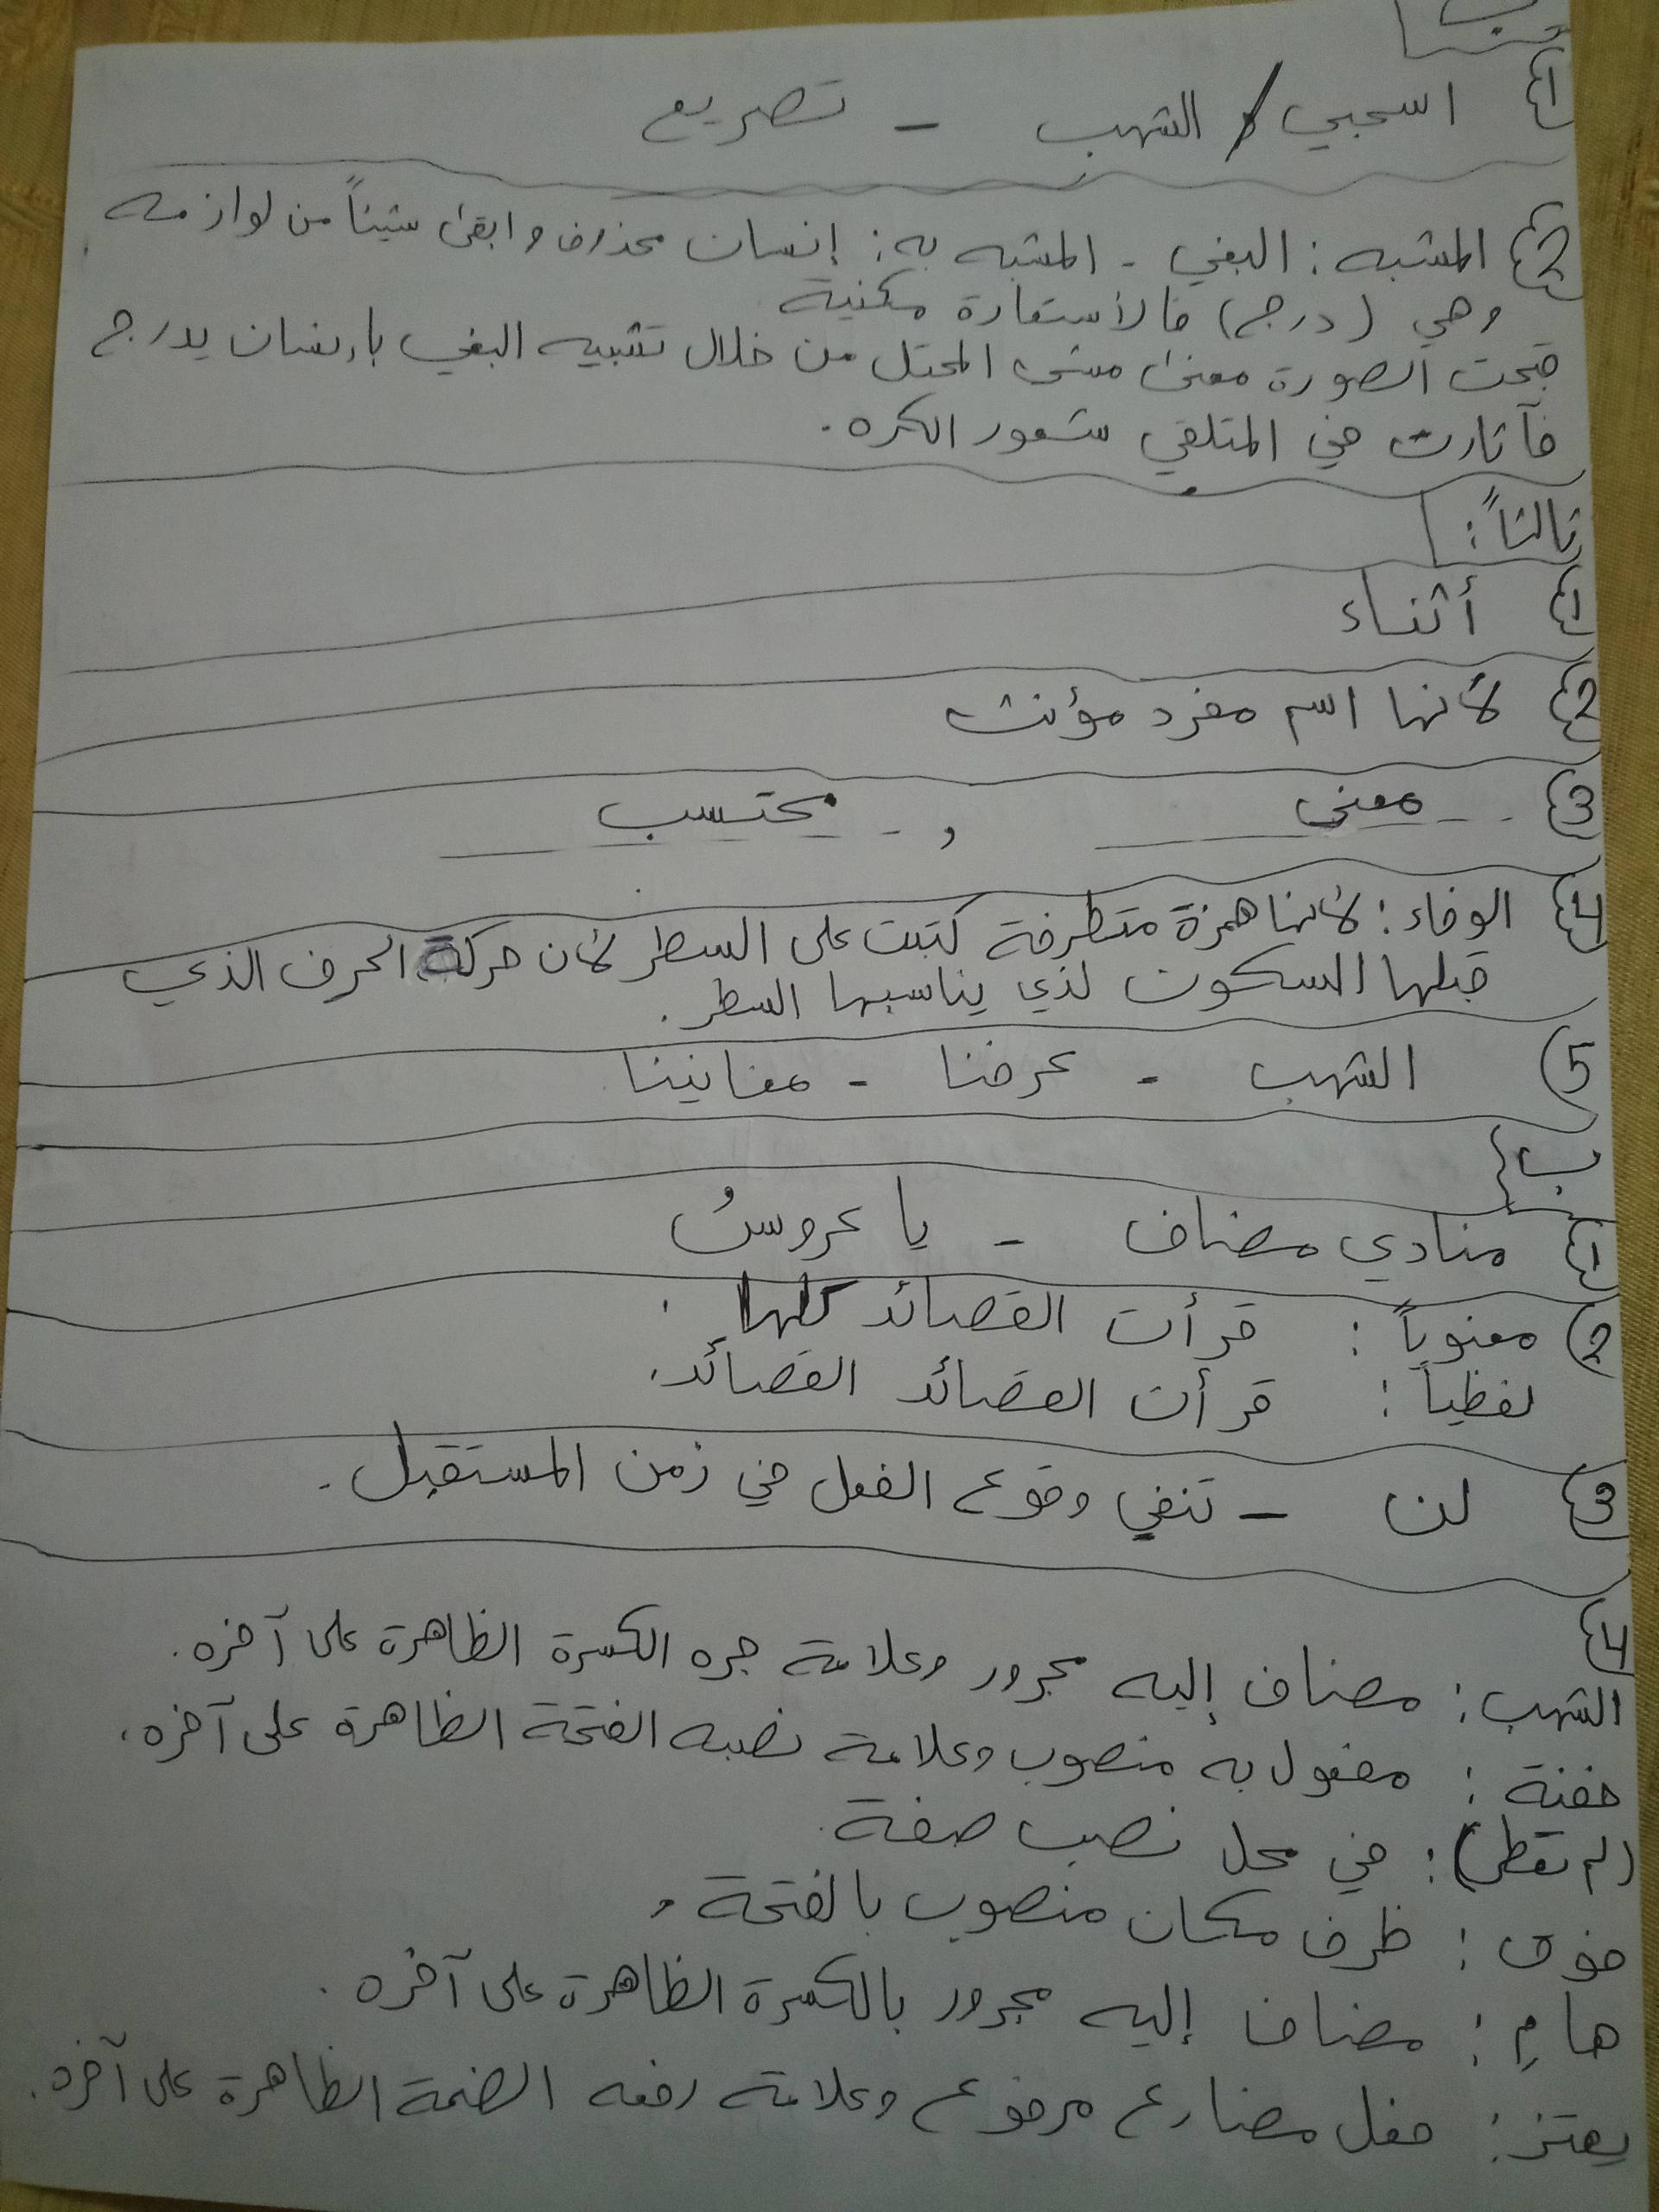 ب
1 اسحبي / الشهب - تصريع
2 المشبه: البغي - المشبه به: إنسان محذوف وابقى شيئاً من لوازمه
وهي (درج) فالأستعارة مكنية
قبحت الصورة معنى مشي المحتل من خلال تشبيه البغي بإنسان يدرج
فآثارت في المتلقي شعور الكره.
ثالثاً:
1 أثناء
2 لأنها اسم مفرد مؤنث
3 معنى , يحتسب
4 الوفاء: لأنها همزة متطرفة كتبت على السطر لأن حركة الحرف الذي
قبلها السكون لذي يناسبها السطر.
5 الشهب - عرفنا - مغانينا
ب
1 منادي مضاف - يا عروسُ
2 معنوياً: قرأت القصائد كلها.
لفظياً: قرأت القصائد القصائد.
3 لن - تنفي وقوع الفعل في زمن المستقبل.
4
الشهب: مضاف إليه مجرور وعلامة جره الكسرة الظاهرة على آخره.
حفنة: مفعول به منصوب وعلامة نصبه الفتحة الظاهرة على آخره.
(لم تقطر): في محل نصب صفة.
فوق: ظرف مكان منصوب بالفتحة.
هامِ: مضاف إليه مجرور بالكسرة الظاهرة على آخره.
يعتز: فعل مضارع مرفوع وعلامته رفعه الضمة الظاهرة على آخره.